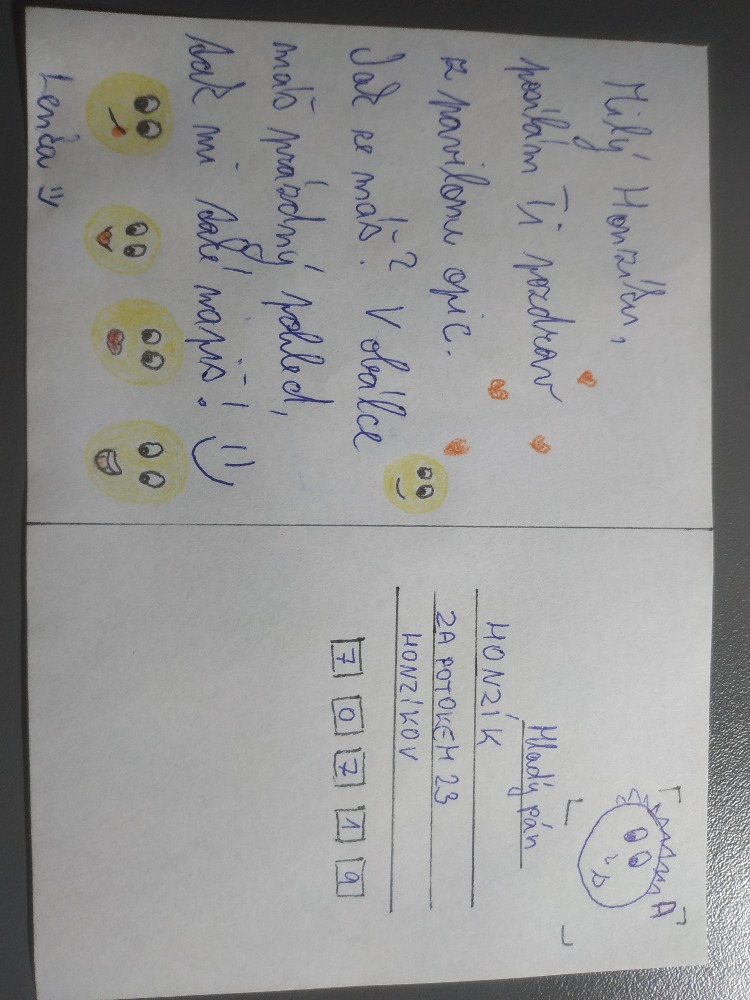 Milý Honzíku,
posílám Ti pozdrav
z pavilonu opic.
Jak se máš? V obálce
máš prázdný pohled,
tak mi také napiš!
Lenča
Mladý pán
HONZÍK
ZA POTOKEM 23
HONZÍKOV
7 0 7 1 9
A